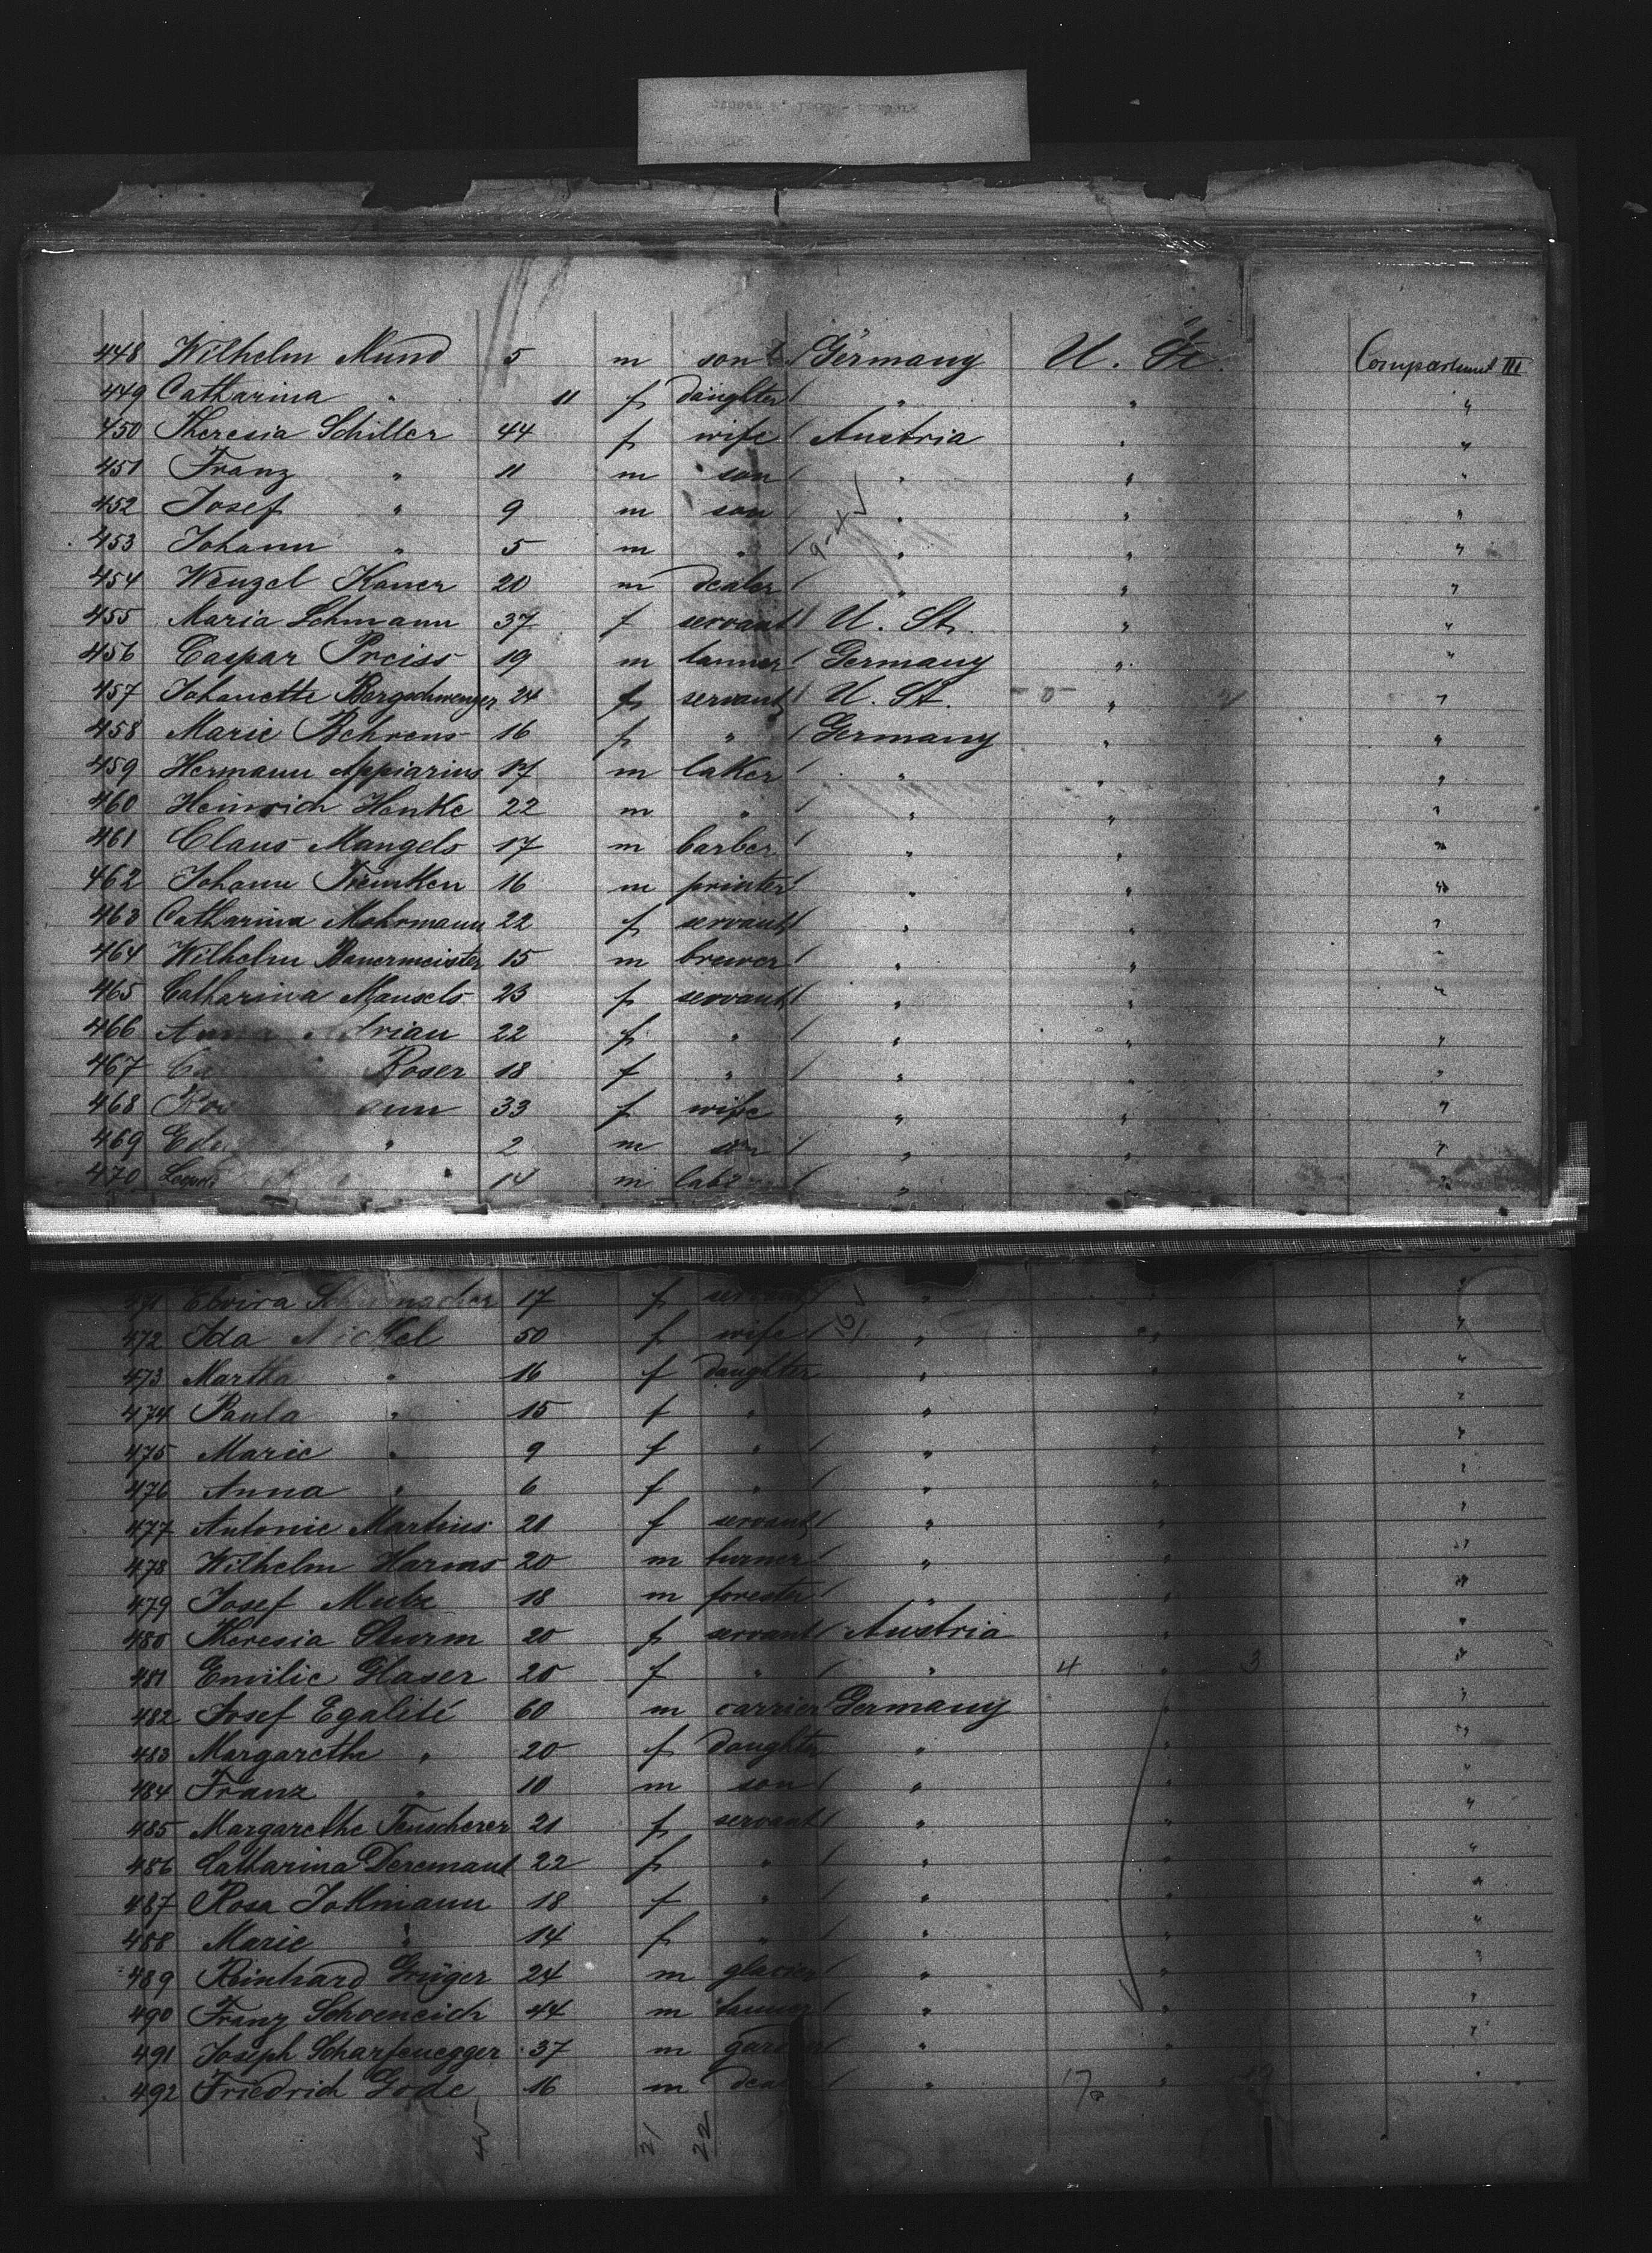 448 Wilhelm Mund 5 m son Germany U. St. Compartment III
449 Catharina " 11 f daughter " " "
450 Theresia Schiller 44 f wife Austria " "
451 Franz " 11 m son " " "
452 Josef " 9 m son " " "
453 Johann " 5 m " " " "
454 Wenzel Kaner 20 m dealer " " "
455 Maria Lehmann 37 f servant U. St. " "
456 Caspar Preiss 19 m tanner Germany " "
457 Johanette Bergschwenger 24 f servant U. St. - 0 - " "
458 Marie Behrens 16 f " Germany " "
459 Hermann Appiarius 17 m baker " " "
460 Heinrich Henke 22 m " " " "
461 Claus Mangels 17 m barber " " "
462 Johann Tremken 16 m printer " " "
463 Catharina Mohrmann 22 f servant " " "
464 Wilhelm Bauermeister 15 m brewer " " "
465 Catharina Mansels 23 f servant " " "
466 Anna Adrian 22 f " " " "
467 Roser 18 f " " " "
468 33 f wife " " "
469 " 2 m son " " "
470 14 m " " "
471 Elvira Schumacher 17 f servant " " "
472 Ida Nickel 50 f wife " " "
473 Martha " 16 f daughter " " "
474 Paula " 15 f " " " "
475 Marie " 9 f " " " "
476 Anna " 6 f " " " "
477 Antonie Martins 21 f servant " " "
478 Wilhelm Harms 20 m turner " " "
479 Josef Mulze 18 m forester " " "
480 Theresia Sturm 20 f servant Austria " "
481 Emilie Glaser 20 f " " 4 " 3 "
482 Josef Egalité 60 m carrier Germany " "
483 Margarethe " 20 f daughter " " "
484 Franz " 10 m son " " "
485 Margarethe Teuscherer 21 f servant " " "
486 Catharina Deremaut 22 f " " " "
487 Rosa Jollmann 18 f " " " "
488 Marie " 14 f " " " "
489 Reinhard Grüger 24 m glacier " " "
490 Franz Schoeneich 44 m tanner " " "
491 Joseph Scharfenegger 37 m " " "
492 Friedrich Gode 16 m " 17 " "
21 22